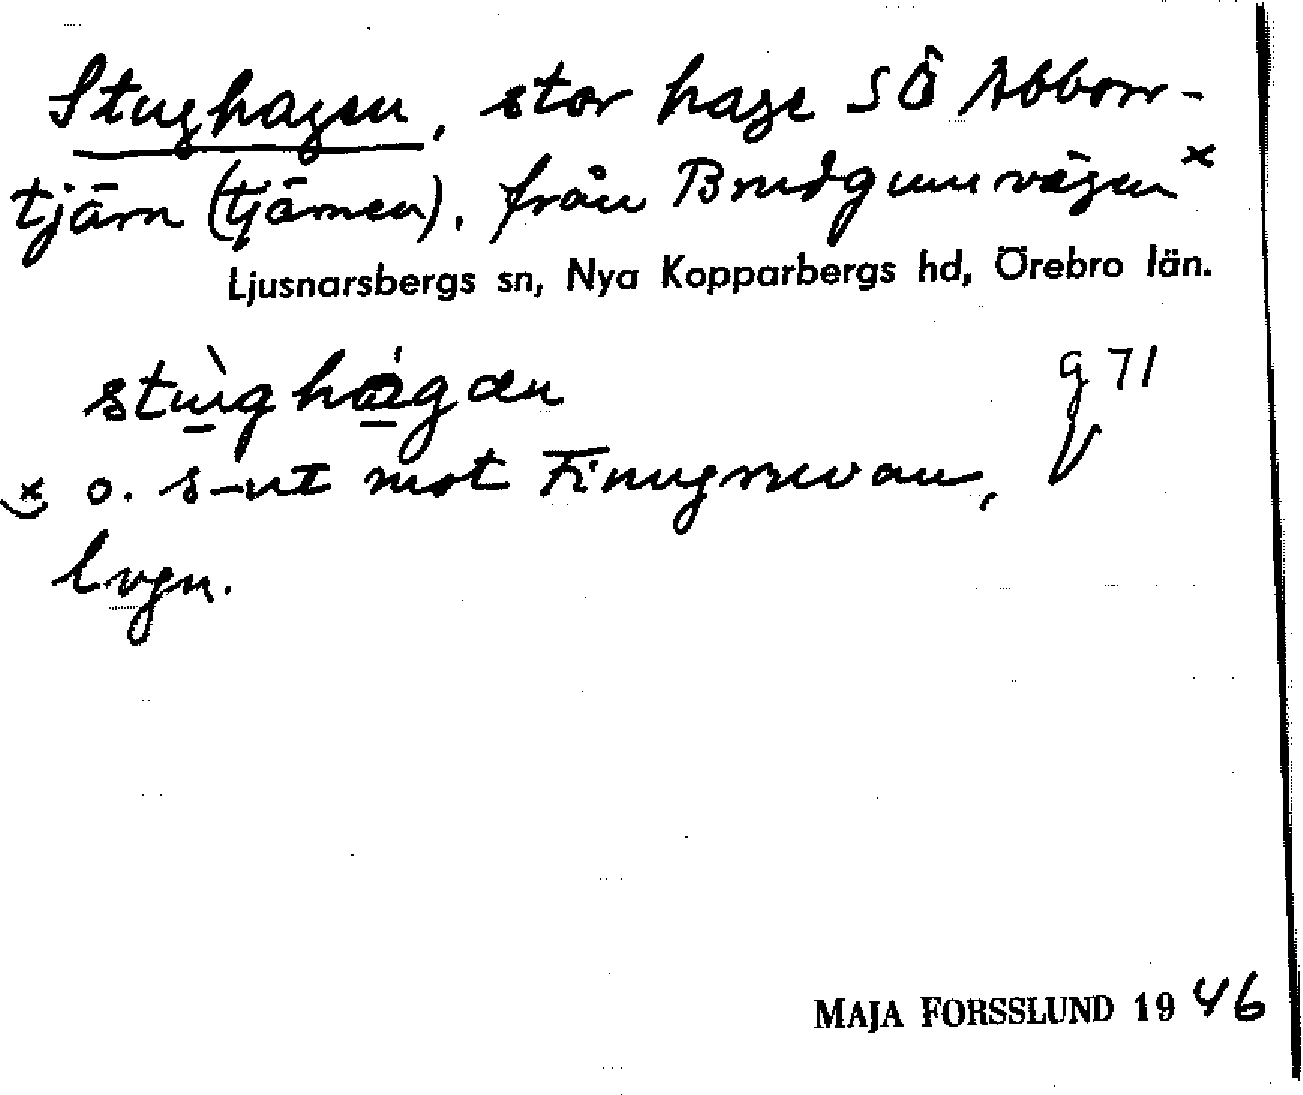 Stughagen, stor hage SÖ Abborr-
tjärn (tjärnen), från Brudgumvägen x
Ljusnarsbergs sn, Nya Kopparbergs hd, Örebro län.
stùghágan g 71
x o. s-ut mot Finngruvan,
lvgn.
MAJA FORSSLUND 1946